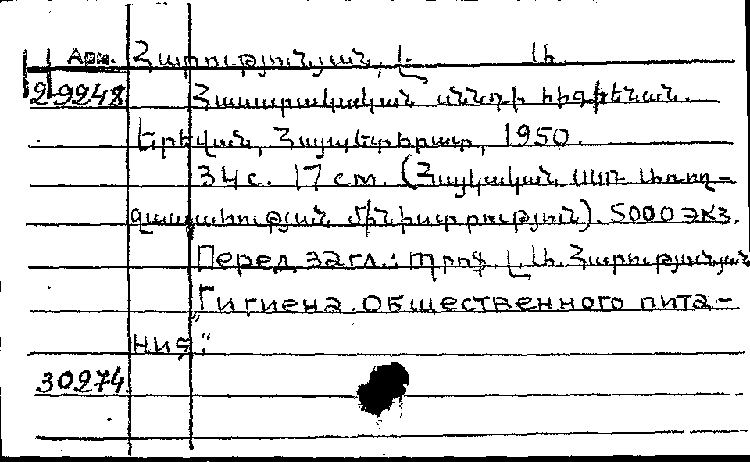 Арм. Հարությունյան, Լ. Ա.
29248 Հասարակական սննդի հիգիենան.
Երևան, Հայպետհրատ, 1950.
34 с. 17 см. (Հայկական ՍՍՌ Առող-
ջապահության մինիստրություն). 5000 экз.
Перед загл.: Պրոֆ. Լ. Ա. Հարությունյան
"Гигиена общественного пита-
ния."
30274